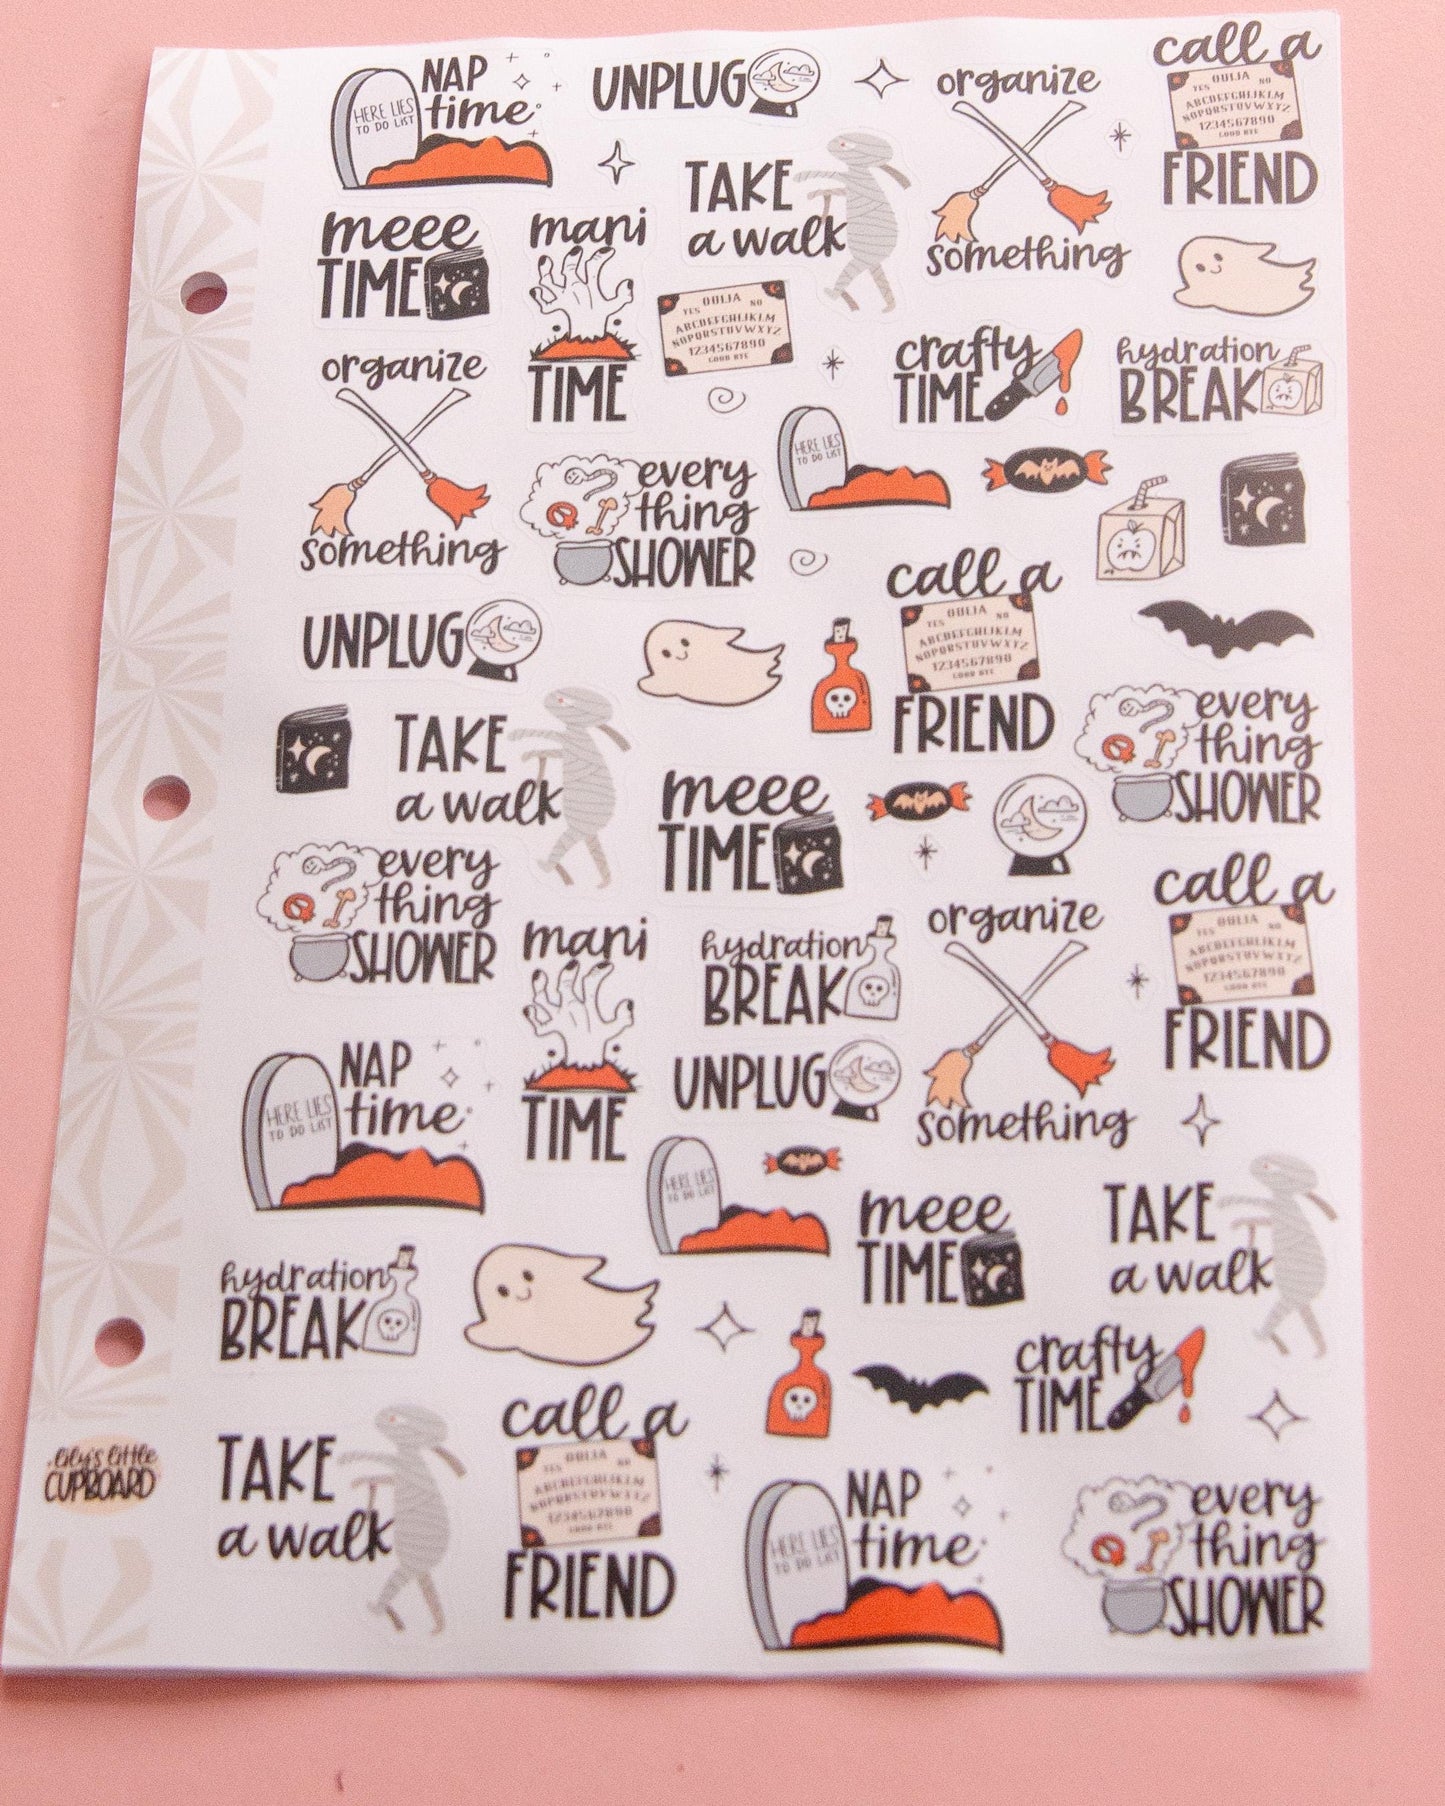 NAP
time
HERE LIES
TO DO LIST
UNPLUG
organize
something
call a
OUIJA
YES NO
ABCDEFGHIJKLM
NOPQRSTUVWXYZ
1234567890
GOOD BYE
FRIEND
TAKE
a walk
meee
TIME
mani
TIME
OUIJA
YES NO
ABCDEFGHIJKLM
NOPQRSTUVWXYZ
1234567890
GOOD BYE
crafty
TIME
hydration
BREAK
organize
something
every
thing
SHOWER
HERE LIES
TO DO LIST
call a
OUIJA
YES NO
ABCDEFGHIJKLM
NOPQRSTUVWXYZ
1234567890
GOOD BYE
FRIEND
UNPLUG
TAKE
a walk
meee
TIME
every
thing
SHOWER
every
thing
SHOWER
mani
TIME
hydration
BREAK
organize
something
call a
OUIJA
YES NO
ABCDEFGHIJKLM
NOPQRSTUVWXYZ
1234567890
GOOD BYE
FRIEND
NAP
time
HERE LIES
TO DO LIST
UNPLUG
HERE LIES
TO DO LIST
meee
TIME
TAKE
a walk
hydration
BREAK
crafty
TIME
lily's little
CUPBOARD
TAKE
a walk
call a
OUIJA
YES NO
ABCDEFGHIJKLM
NOPQRSTUVWXYZ
1234567890
GOOD BYE
FRIEND
NAP
time
HERE LIES
TO DO LIST
every
thing
SHOWER